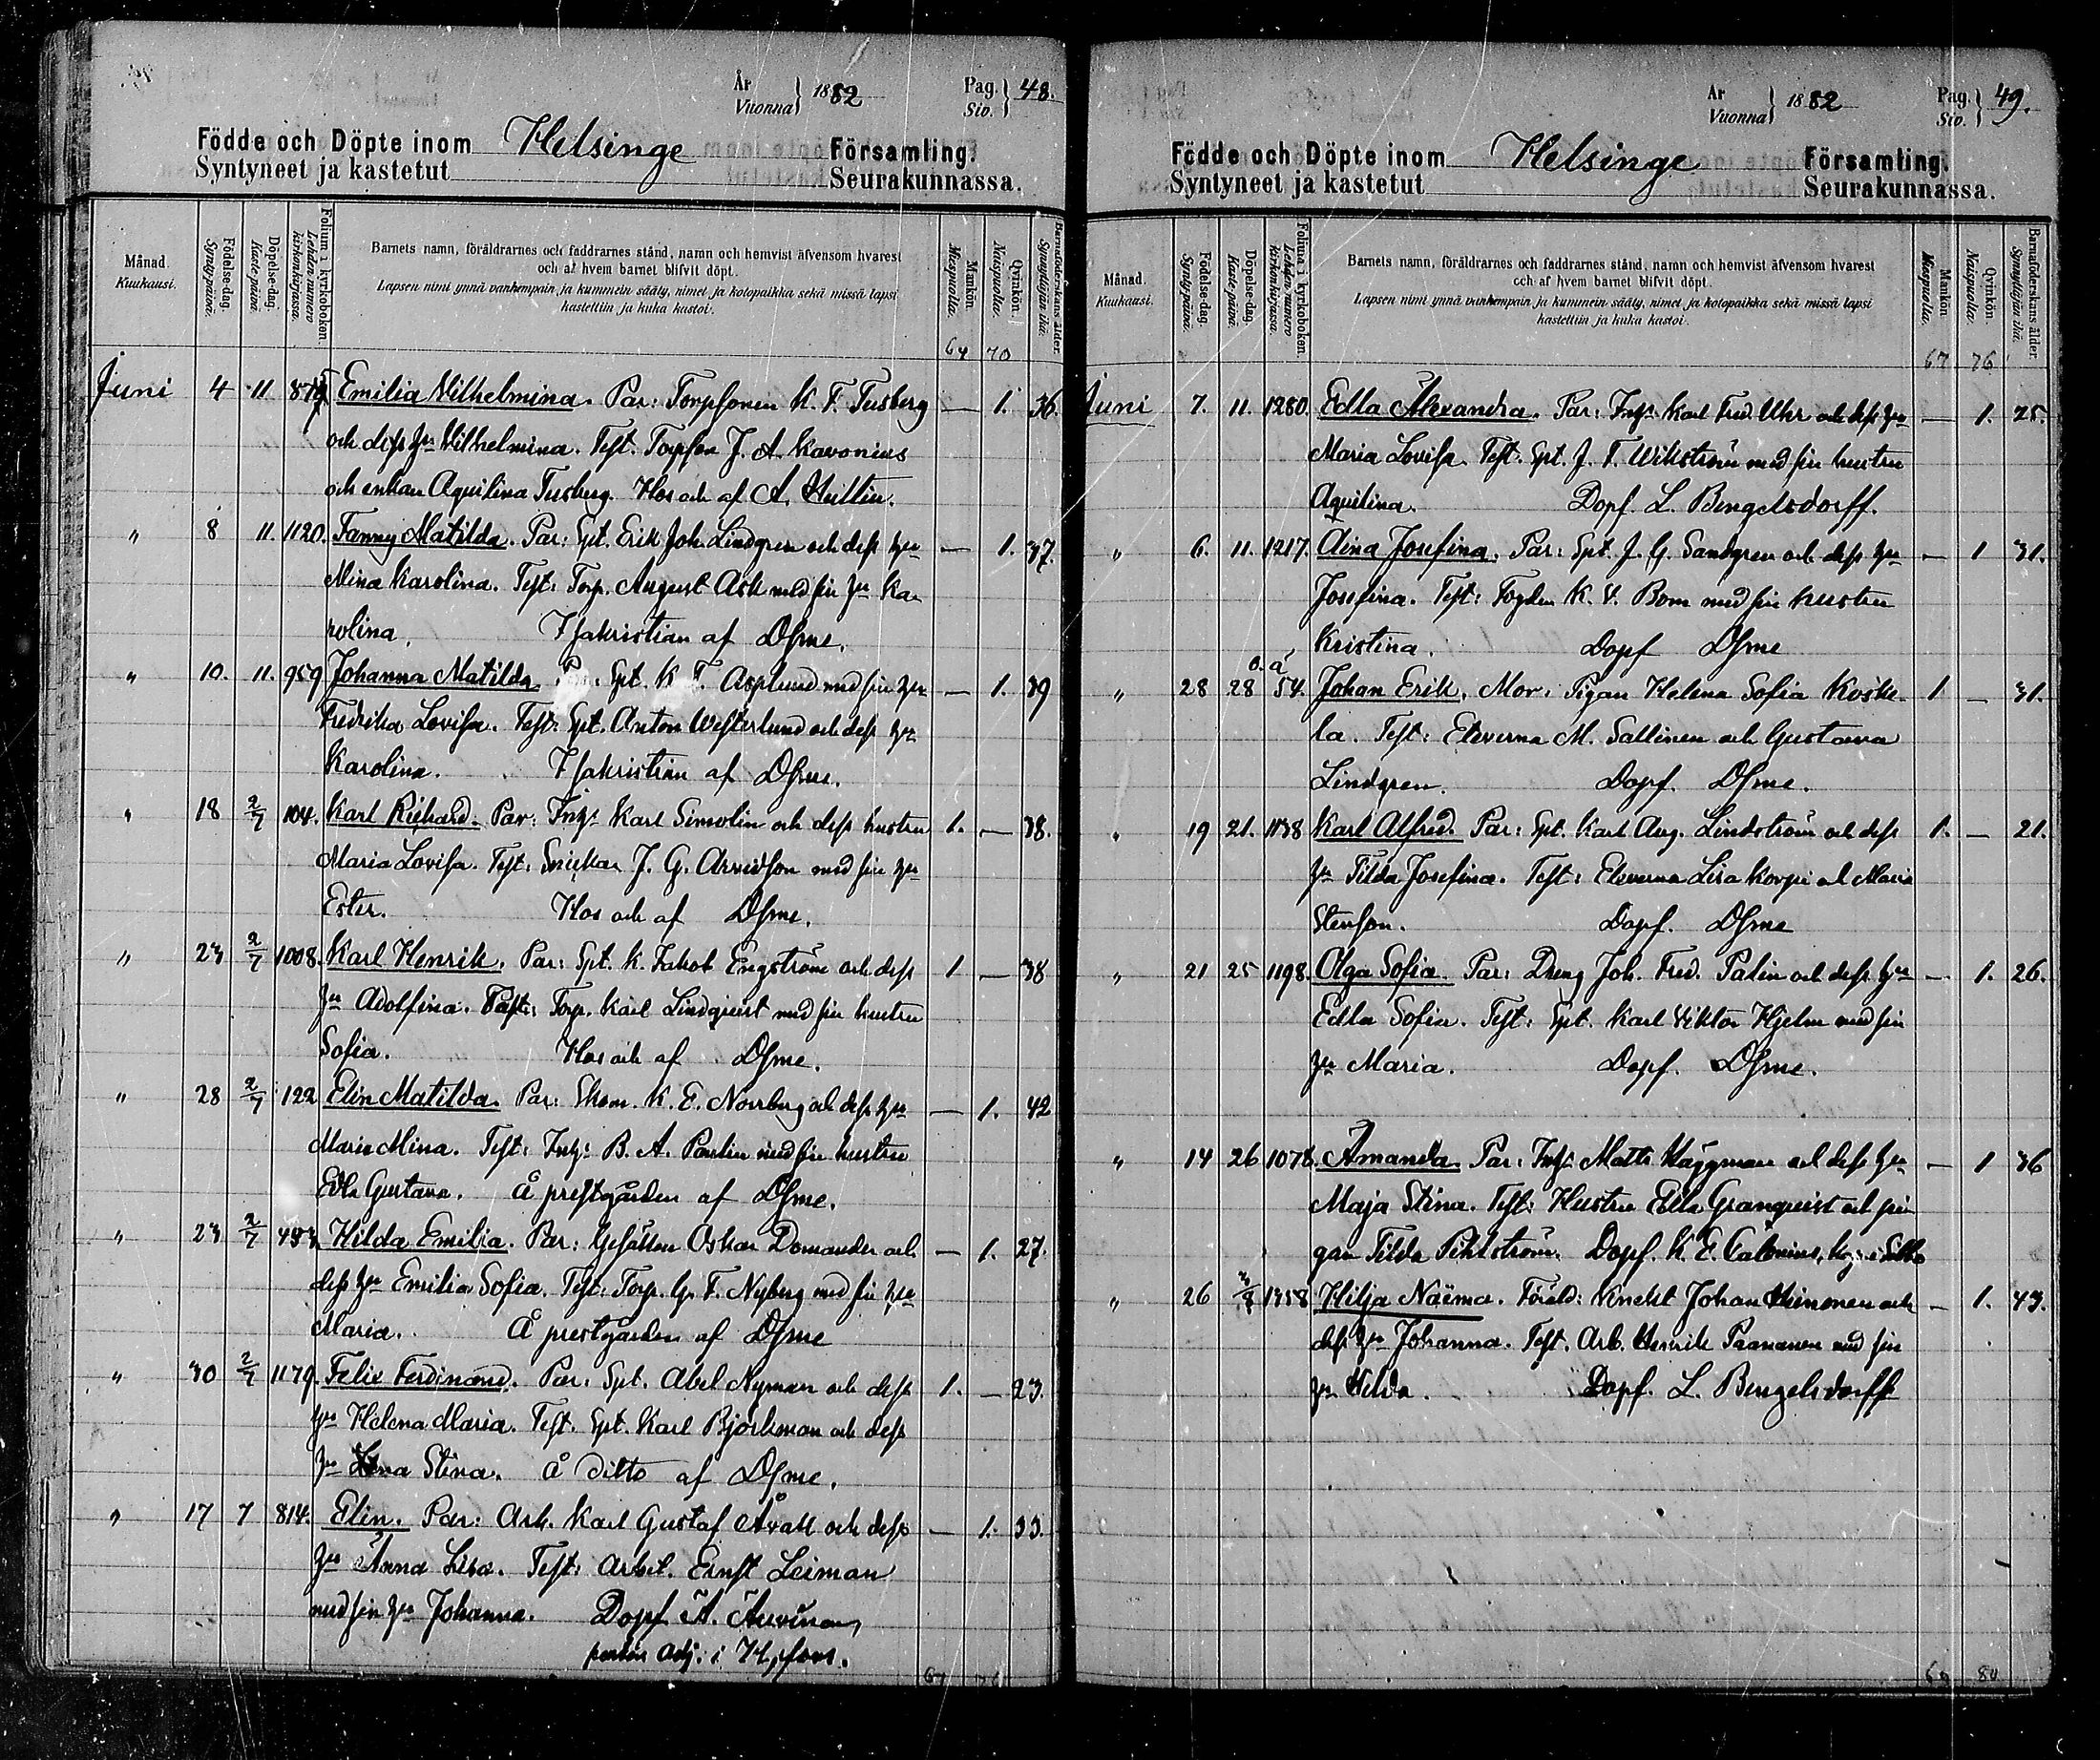 År
Vuonna } 1882 Pag.
Siv. } 48.
Födde och Döpte inom Helsinge Församling.
Syntyneet ja kastetut Seurakunnassa.
Månad.
Kuukausi.
Födelse-dag.
Syntypäivä.
Döpelse-dag.
Kaste-päivä.
Folium i kyrkoboken.
Lehden numero kirkonkirjassa.
Barnets namn, föräldrarnes och faddrarnes stånd, namn och hemvist äfvensom hvarest
och af hvem barnet blifvit döpt.
Lapsen nimi ynnä vanhempain ja kummein sääty, nimet ja kotopaikka sekä missä lapsi
kastettiin ja kuka kastoi.
Mankön.
Miespuolia.
Qvinkön.
Naispuolia.
Barnaföderskans ålder.
Synnyttäjän ikä.
64 70
Juni 4 11 Emilia Vilhelmina. Par: Torpsonen K. F. Tusberg — 1. 36.
och dess hu Vilhelmina. Test. Torpson J. A. Kavonius
och enkan Aquilina Tusberg. Hos och af A. Hultin.
" 8 11. 1120. Fanny Matilda. Par: Spt. Erik Joh. Lindgren och dess hu — 1. 37.
Mina Karolina. Test: Torp. August Ask med sin hu Ka-
rolina. I sakristian af Dsme.
" 10. 11. 959 Johanna Matilda. Par: Spt. K. F. Asplund med sin hu — 1. 39
Fredrika Lovisa. Test: Spt. Anton Westerlund och dess hu
Karolina. I sakristian af Dsme.
" 18 2/7 104. Karl Rickard. Par: Inh: Karl Simolin och dess hustru 1. — 38.
Maria Lovisa. Test: Snickar J. G. Arvidson med sin hu
Ester. Hos och af Dsme.
" 23 2/7 1008. Karl Henrik. Par: Spt. K. Jakob Engström och dess 1 — 38
hu Adolfina. Test: Torp. Karl Lindqvist med sin hustru
Sofia. Hos och af Dsme.
" 28 2/7 122 Elin Matilda. Par: Skom. K. E. Norrberg och dess hu — 1. 42
Maria Mina. Test: Inh: B. A. Paulin med sin hustru
Edla Gustava. Å prestgården af Dsme.
" 23 2/7 Hilda Emilia. Par: Oskar Domander och — 1. 27.
dess hu Emilia Sofia. Test: Torp. G. F. Nyberg med sin hu
Maria. Å prestgården af Dsme
" 30 2/7 1179. Felix Ferdinand. Par: Spt. Abel Nyman och dess 1. — 23.
hu Helena Maria. Test. Spt. Karl Björkman och dess
hu Lena Stina. Å ditto af Dsme.
" 17 7 814. Elin. Par: Arb. Karl Gustaf och dess — 1. 33.
hu Anna Lisa. Test: Arbet. Ernst Leiman
med sin hu Johanna. Dopf. A. Auvinen,
adj. i H:fors.
67 76
År
Vuonna } 1882 Pag.
Siv. } 49.
Födde och Döpte inom Helsinge Församling.
Syntyneet ja kastetut Seurakunnassa.
Månad.
Kuukausi.
Födelse-dag.
Syntypäivä.
Döpelse-dag.
Kaste-päivä.
Folium i kyrkoboken.
Lehden numero kirkonkirjassa.
Barnets namn, föräldrarnes och faddrarnes stånd, namn och hemvist äfvensom hvarest
och af hvem barnet blifvit döpt.
Lapsen nimi ynnä vanhempain ja kummein sääty, nimet ja kotopaikka sekä missä lapsi
kastettiin ja kuka kastoi.
Mankön
Miespuolia.
Qvinkön.
Naispuolia.
Barnaföderskans ålder.
Synnyttäjän ikä.
67 76
Juni 7. 11. 1280. Edla Alexandra. Par: Inh: Karl Fred. Uhr och dess hu — 1. 25.
Maria Lovisa. Test. Spt. J. F. Wikström med sin hustru
Aquilina. Dopf. L. Bengelsdorff.
" 6. 11. 1217. Aina Josefina. Par: Spt. J. G. Sandgren och dess hu — 1 31.
Josefina. Test: Fogden K. V. Bom med sin hustru
Kristina. Dopf Dsme
" 28 28 o. ä. 54. Johan Erik. Mor: Pigan Helena Sofia Koske- 1 — 31.
la. Test: Eleverna M. Sallinen och Gustava
Lindgren. Dopf. Dsme.
" 19 21. 1138 Karl Alfred. Par: Spt. Karl Aug. Lindström och dess 1. — 21.
hu Tilda Josefina. Test: Eleverna Lisa Korpi och Maria
Stenson. Dopf. Dsme
" 21 25 1198. Olga Sofia. Par: Dreng Joh. Fred. Palin och dess hu — 1. 26.
Edla Sofia. Test: Spt. Karl Viktor Hjelm med sin
hu Maria. Dopf. Dsme.
" 14 26 1078. Amanda. Par: Inh: Matts Häggman och dess hu — 1 36
Maja Stina. Test: Hustru Edla Granqvist och pi-
gan Tilda Pihlström. Dopf. K. E. Calonius, i Sibbo
" 26 1358 Hilja Naima. Föräld: Knekt Johan Hinonen och — 1. 43.
dess hu Johanna. Test. Arb. Henrik Paananen med sin
hu Hilda. Dopf. L. Bengelsdorff
69 80